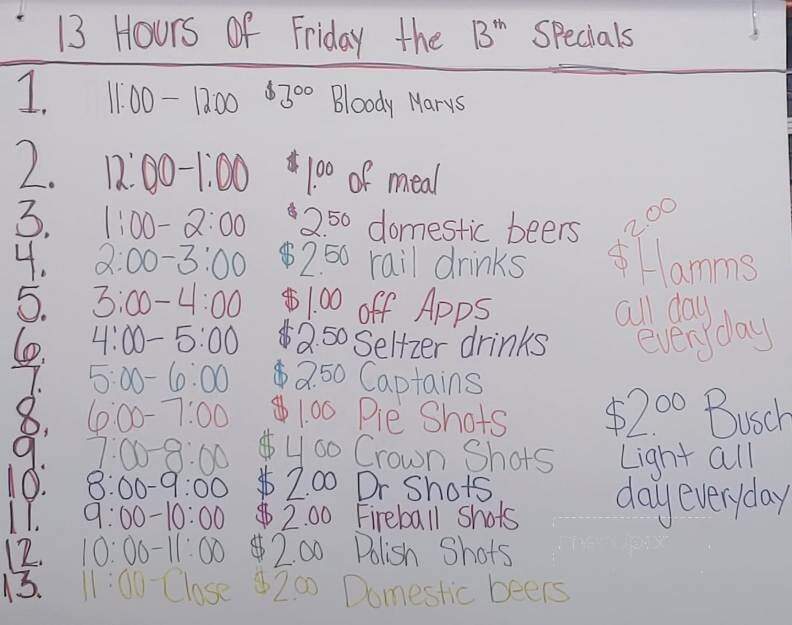 13 Hours Of Friday the 13th Specials
1. 11:00 - 12:00 $3.00 Bloody Marys
2. 12:00-1:00 $1.00 of meal
3. 1:00- 2:00 $2.50 domestic beers
4. 2:00-3:00 $2.50 rail drinks
5. 3:00-4:00 $1.00 off Apps
6. 4:00- 5:00 $2.50 Seltzer drinks
7. 5:00- 6:00 $2.50 Captains
8. 6:00- 7:00 $1.00 Pie Shots
9. 7:00-8:00 $4.00 Crown Shots
10. 8:00-9:00 $2.00 Dr Shots
11. 9:00-10:00 $2.00 Fireball Shots
12. 10:00-11:00 $2.00 Polish Shots
13. 11:00-Close $2.00 Domestic beers
$2.00 Hamms
all day
everyday
$2.00 Busch
Light all
day everyday
menupix